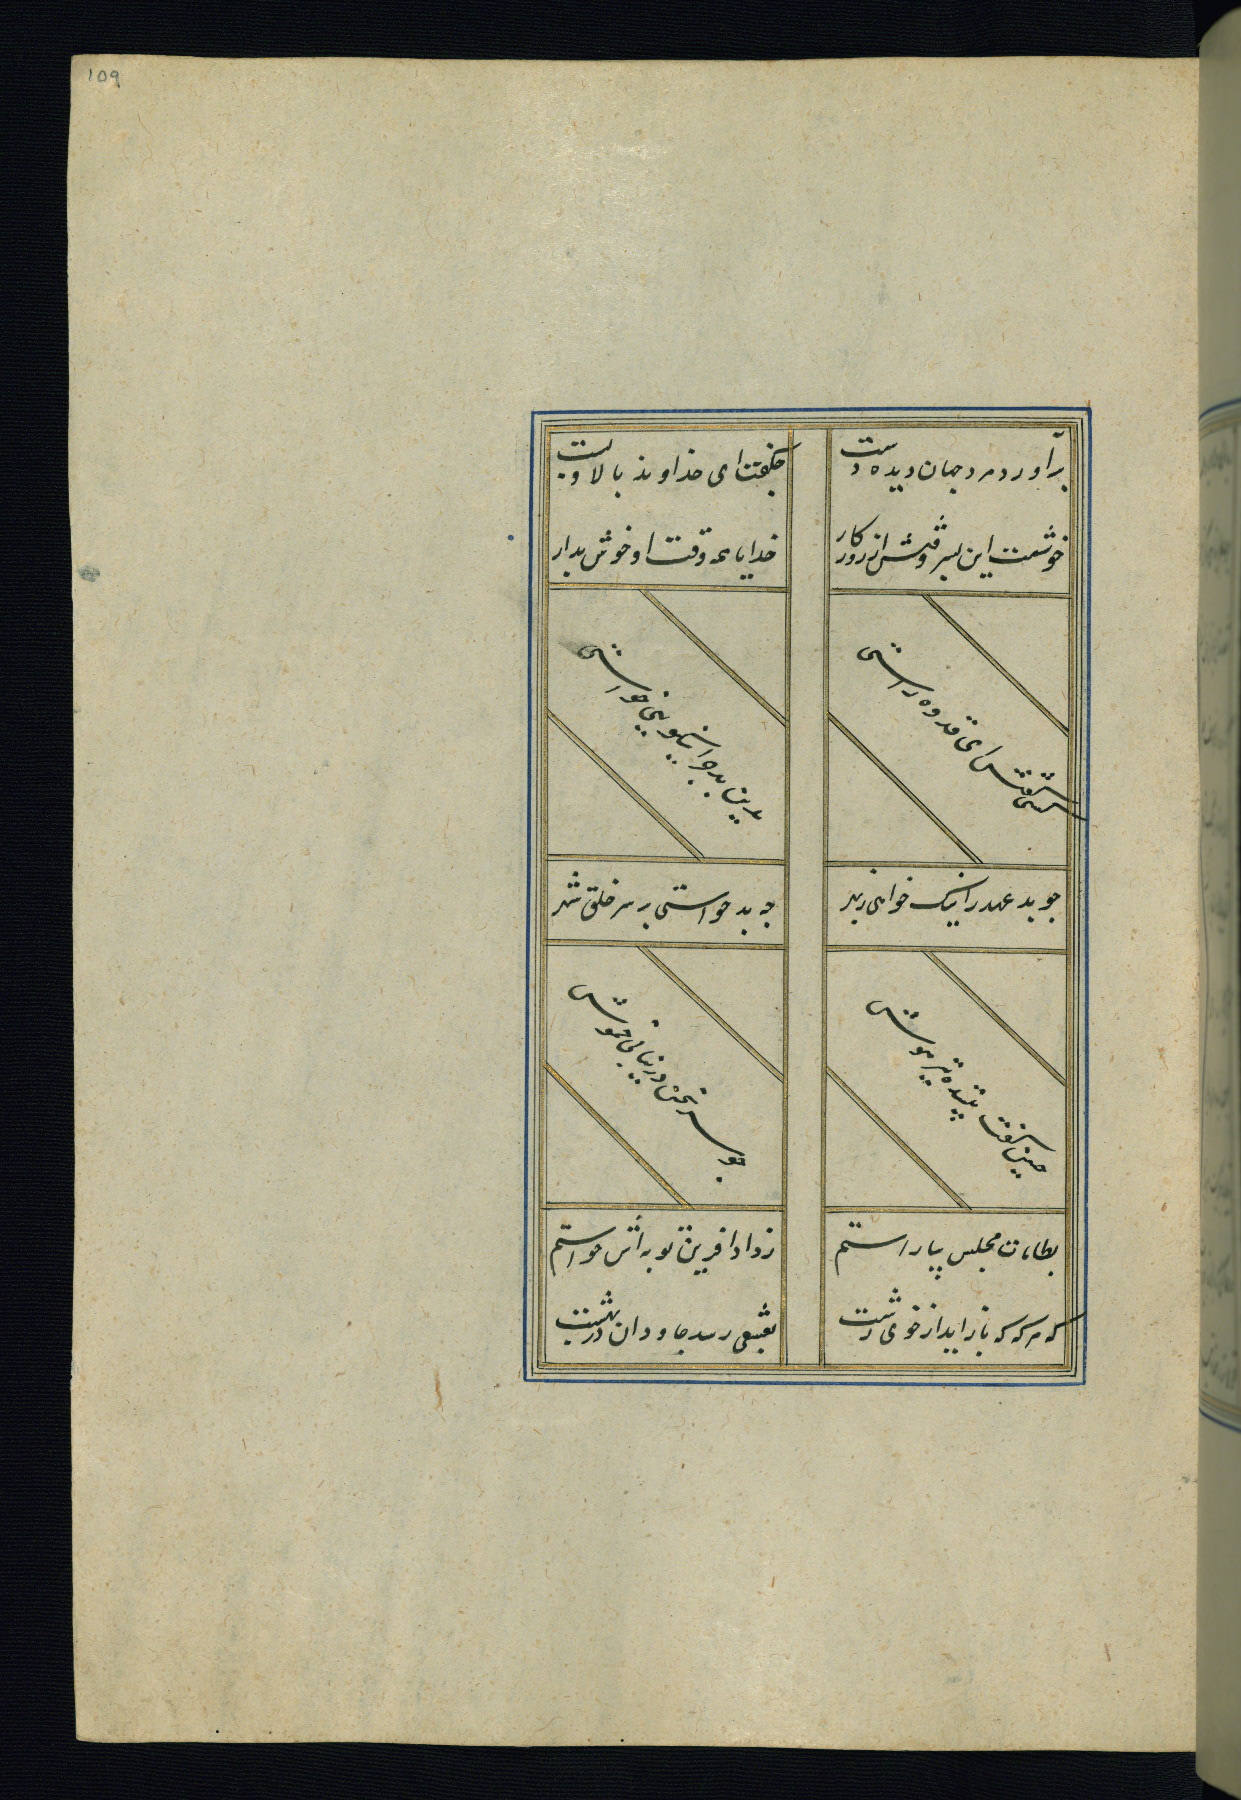 109
برآورد مرد جهان دیده دست
چگفت ای خداوند بالا و پست
خوشست این پسر وقتش از روزکار
خدایا همه وقت او خوش بدار
کسی گفتش ای قدوه راستی
بدین بد چرا نیکویی خواستی
چو بد عهد را نیک خواهی ز بهر
چه بد خواستی بر سر خلق شهر
چنین گفت بیننده تیز هوش
چو سر سخن در نیابی خموش
بطامات مجلس بیاراستم
ز داد آفرین توبه اش خواستم
که هر که که باز اید از خوی زشت
بعیشی رسد جاودان در بهشت